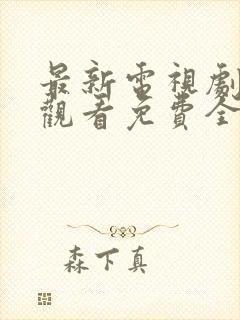 最新電視劇
觀看免費全
森下真